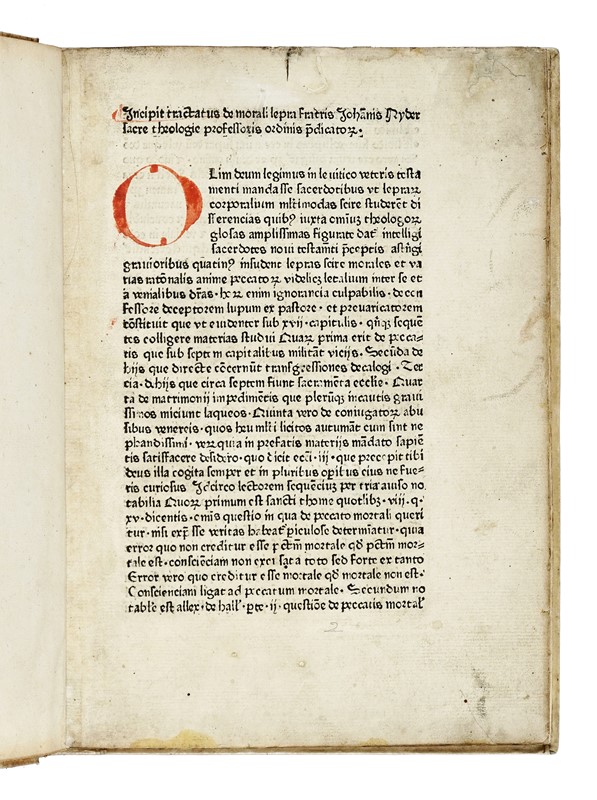 Incipit tractatus de morali lepra fratris Johānis Nyder
sacre theologie professoris ordinis p̄dicatoꝝ.
OLim deum legimus in leuitico veteris testa
menti mandasse sacerdotibus vt lepraꝝ
corporalium mltimodas scire studerēt di
fferencias quibꝰ iuxta omniuȝ theologoꝝ
glosas amplissimas figurate dat̄ intelligi
sacerdotes noui testamēti p̄ceptis astrīgi
grauioribus quatinꝰ insudent lepras scire morales et va
rias rationalis anime peccatoꝝ videlicꝫ letalium inter se et
a venialibus dr̄as · hoꝝ enim ignorancia culpabilis · de con
fessore deceptorem lupum ex pastore · et preuaricatorem
cōstituit que vt euidenter sub xvij · capitulis · qn̄qꝫ seque
tes colligere materias studui Quaꝝ prima erit de pecca-
tis que sub septem capitalibus militāt vicijs · Secūda de
hijs que directe cōcernūt transgressiones decalogi · Ter
cia · d̄ hijs que circa septem fiunt sacramēta ecclīe · Quar
ta de matrimonij impedimētis que plerūqꝫ incautis graui
ssimos iniciunt laqueos · Quinta vero de coniugatoꝝ abu
sibus venereis · quos heu mlti licitos autumāt cum sint ne
phandissimi · veꝝ quia in prefatis materijs mādato sapiē
tis satisfacere desidero · quo dicit ecci · iij · que precepit tibi
deus illa cogita semper et in pluribus opībus eius ne fue-
ris curiosus Idcirco lectorem sequenciuȝ per tria auiso no
tabilia Quoꝝ primum est sancti thome quotlibꝫ · viij · q ·
xv · dicentis · omīs questio in qua de peccato mortali queri
tur · nisi exp̄sse veritas habeat̄ p̄iculose determīatur · quia
error quo non creditur esse pctm̄ mortale qd̄ pctm̄ mor-
tale est · conscienciam non excusat a toto sed forte ex tanto
Error vero quo creditur esse mortale qd̄ mortale non est ·
Conscienciam ligat ad peccatum mortale · Secundum no
tabile est allex · de hall' · p̄te · ij · questiōe de peccatis mortal'
2